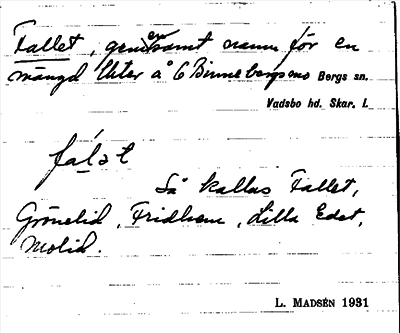 Fallet, gemensamt namn för en
mängd lhter å 6 Binneberg smo Bergs sn.
Vadsbo hd. Skar. l.
fálət
Så kallas Fallet,
Grönelid, Fridhem, Lilla Edet,
Molid.
L. MADSÉN 1931